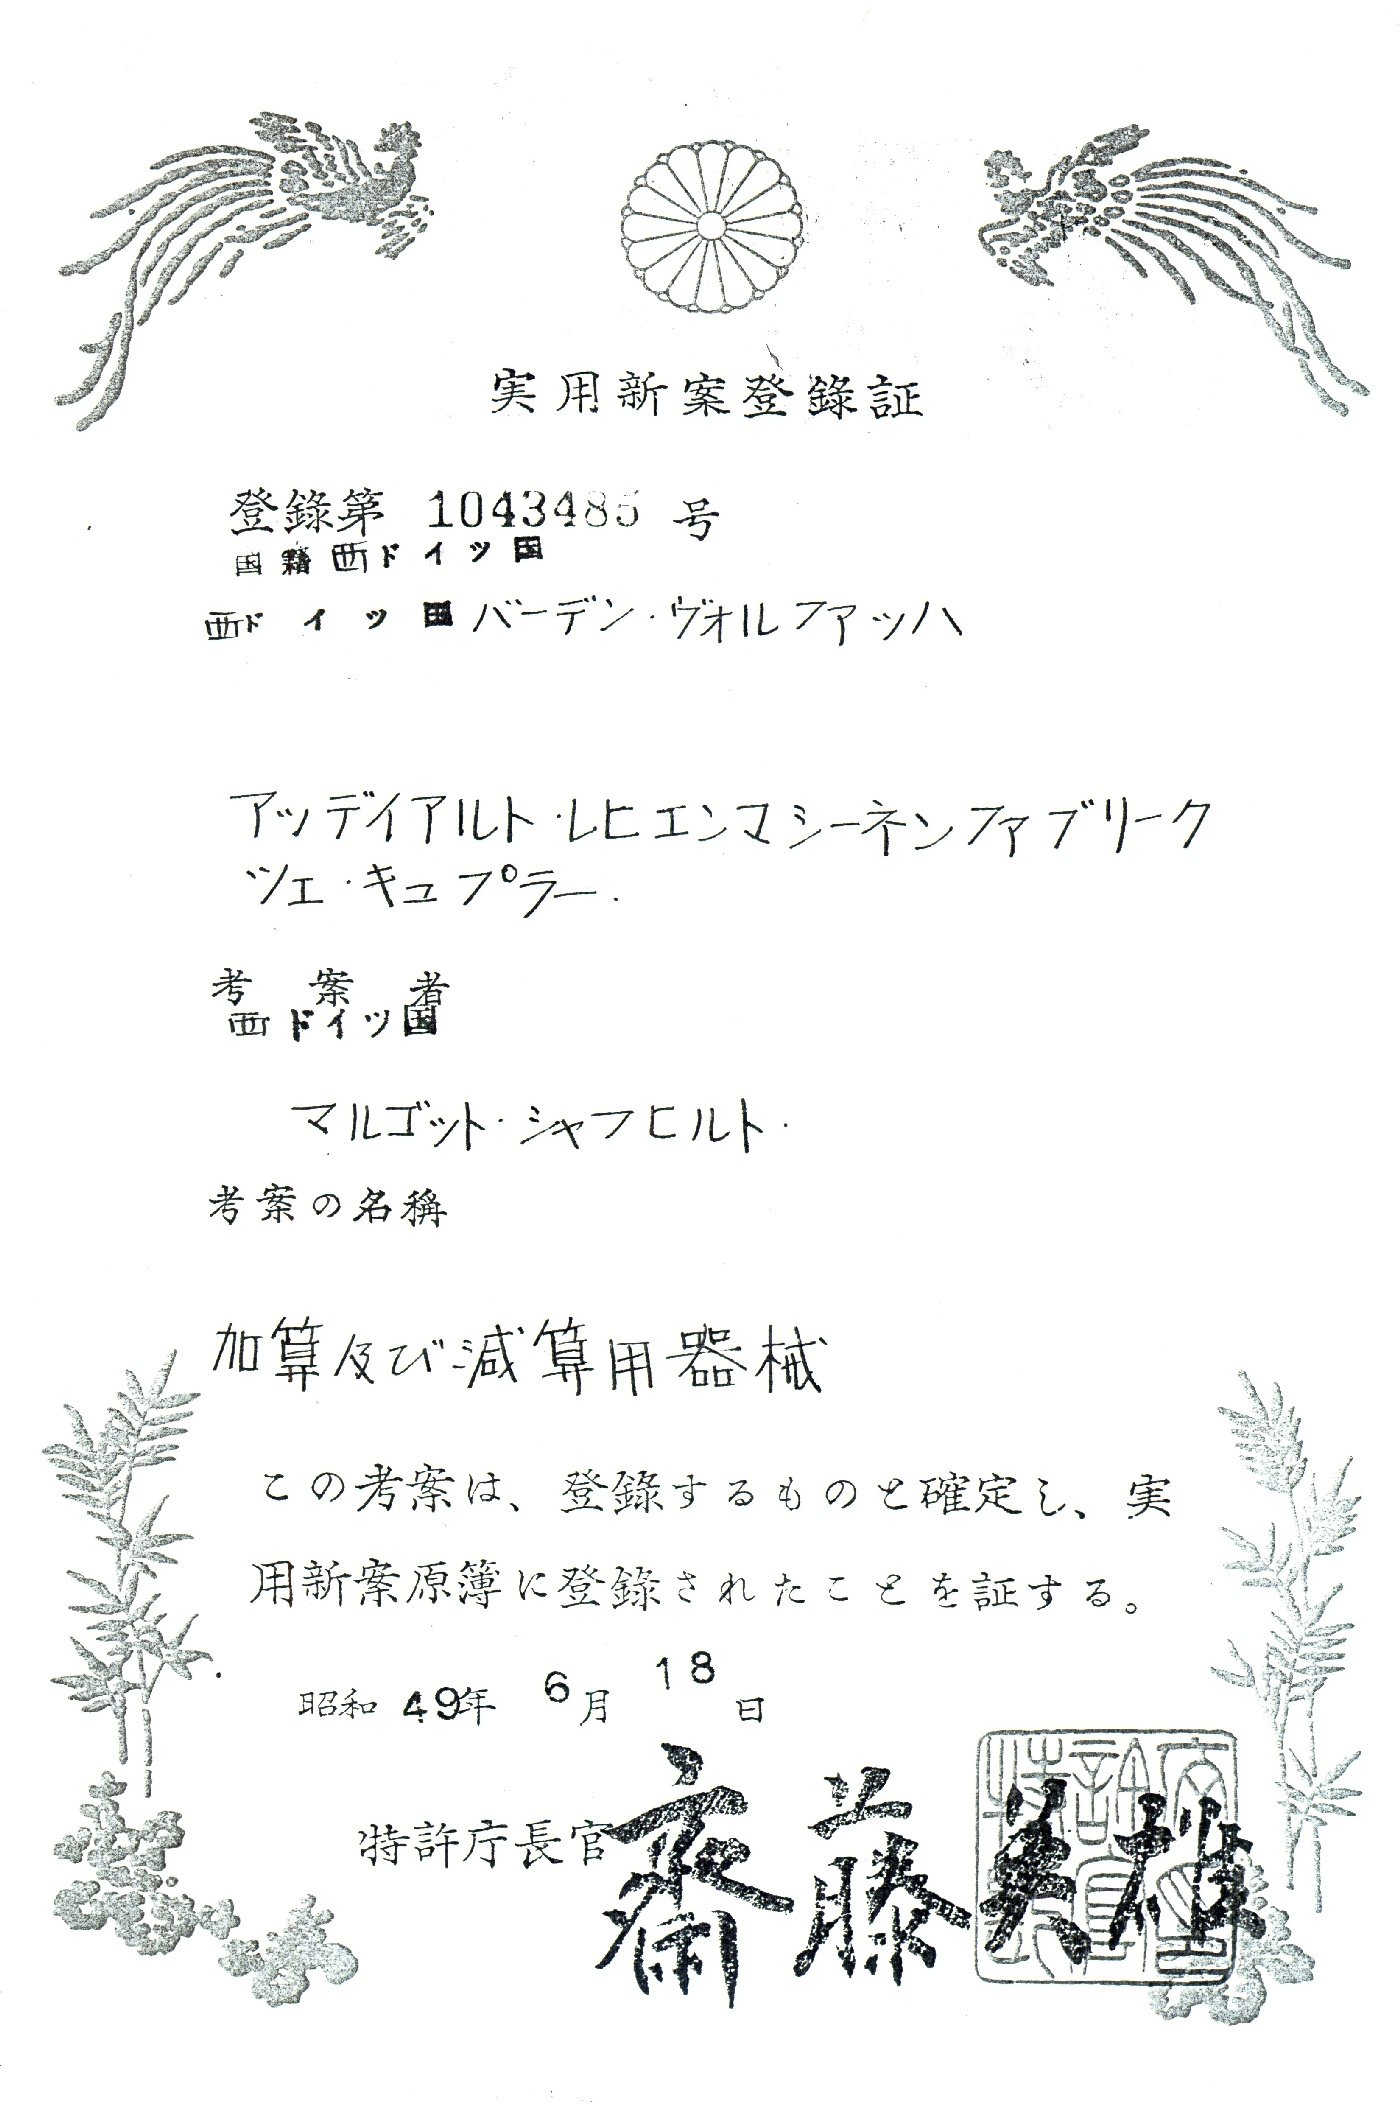 実用新案登録証
登録第 1043485 号
国籍西ドイツ国
西ドイツ国バーデン・ヴォルファッハ
アッディアルト・レヒエンマシーネンファブリーク
ツェ・キュプラー.
考案者
西ドイツ国
マルゴット・シャフヒルト.
考案の名称
加算及び減算用器械
この考案は、登録するものと確定し、実
用新案原簿に登録されたことを証する。
昭和 49年 6月 18日
特許庁長官 齋藤英雄